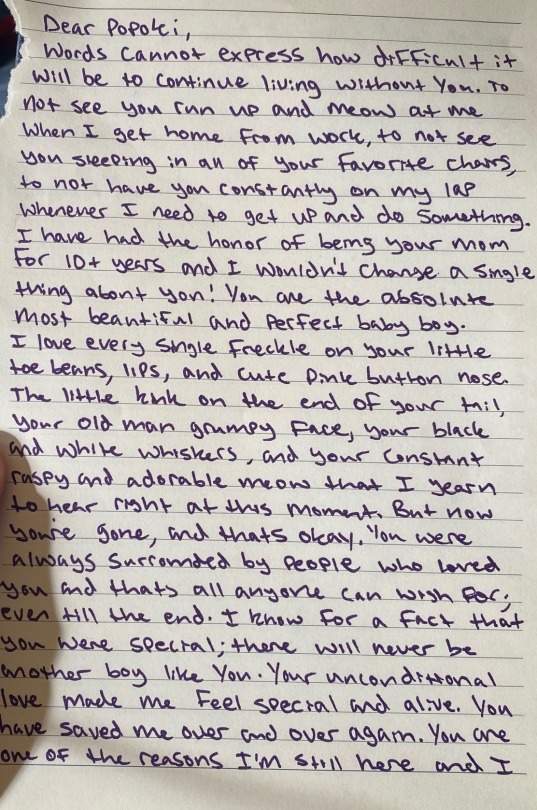 Dear Popoki,
Words cannot express how difficult it
will be to continue living without you. To
not see you run up and meow at me
when I get home from work, to not see
you sleeping in all of your favorite chairs,
to not have you constantly on my lap
whenever I need to get up and do something.
I have had the honor of being your mom
for 10+ years and I wouldn't change a single
thing about you! You are the absolute
most beautiful and perfect baby boy.
I love every single freckle on your little
toe beans, lips, and cute pink button nose.
The little kink on the end of your tail,
your old man grumpy face, your black
and white whiskers, and your constant
raspy and adorable meow that I yearn
to hear right at this moment. But now
you're gone, and thats okay. You were
always surrounded by people who loved
you and thats all anyone can wish for;
even till the end. I know for a fact that
you were special; there will never be
another boy like you. Your unconditional
love made me feel special and alive. You
have saved me over and over again. You are
one of the reasons I'm still here and I